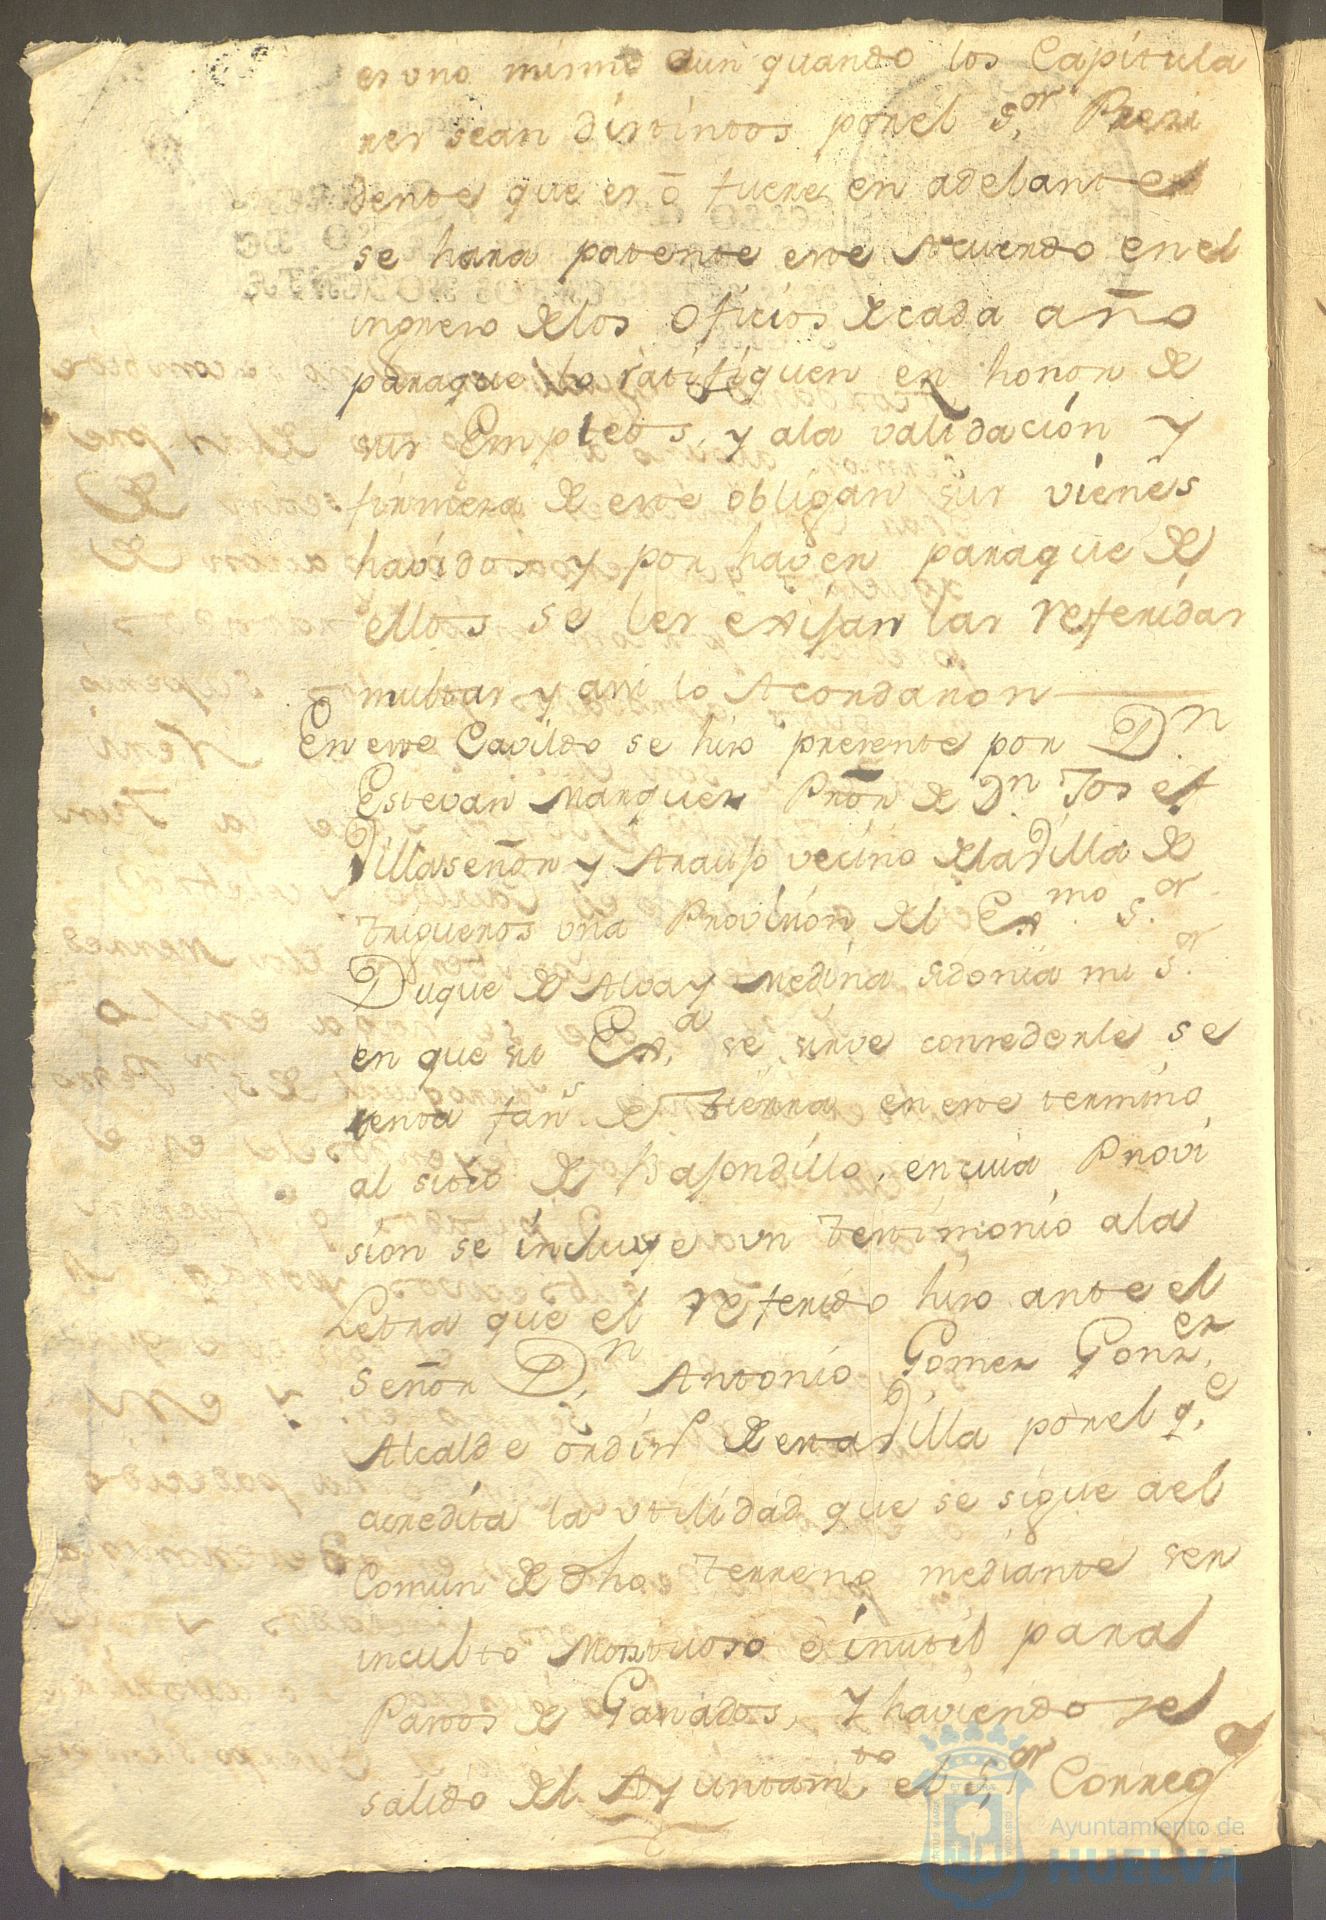 es uno mismo aun quando los Capitula
res sean distintos por el S.or Presi
dente que es ó fuere en adelante
se hara patente este Acuerdo en el
ingreso de los oficios de cada año
paraque lo ratifiquen en honor de
sus Empleos, y ala validación y
firmeza de este obligan sus vienes
havidos y por haver paraque de
ellos se les exijan las referidas
multas y assi lo Acordaron
En este Cavildo se hizo presente por D.n
Estevan Marquez Prõr de D.n Josef
Villaseñor y Araujo vecino dela Villa de
trigueros una Provision del Ex.mo S.or
Duque de Alva y Medina sidonia mi S.or
en que su Ex.a se sirve concederle se
tenta fan.s de Tierra en este termino
al sitio de Bajondillo, en cuia Provi
sion se incluye un testimonio ala
Letra que el referido hizo ante el
señor D.n Antonio Gomez Gonz.ez
Alcalde ordin.o de esta Villa por el q.e
acredita la utilidad que se sigue ael
Comun de dho terreno mediante ser
inculto Montuoso é inutil para
Pastos de Ganados, Y haviendose
salido del Ayuntam.to el S.or Correg.or
Ayuntamiento de
HUELVA